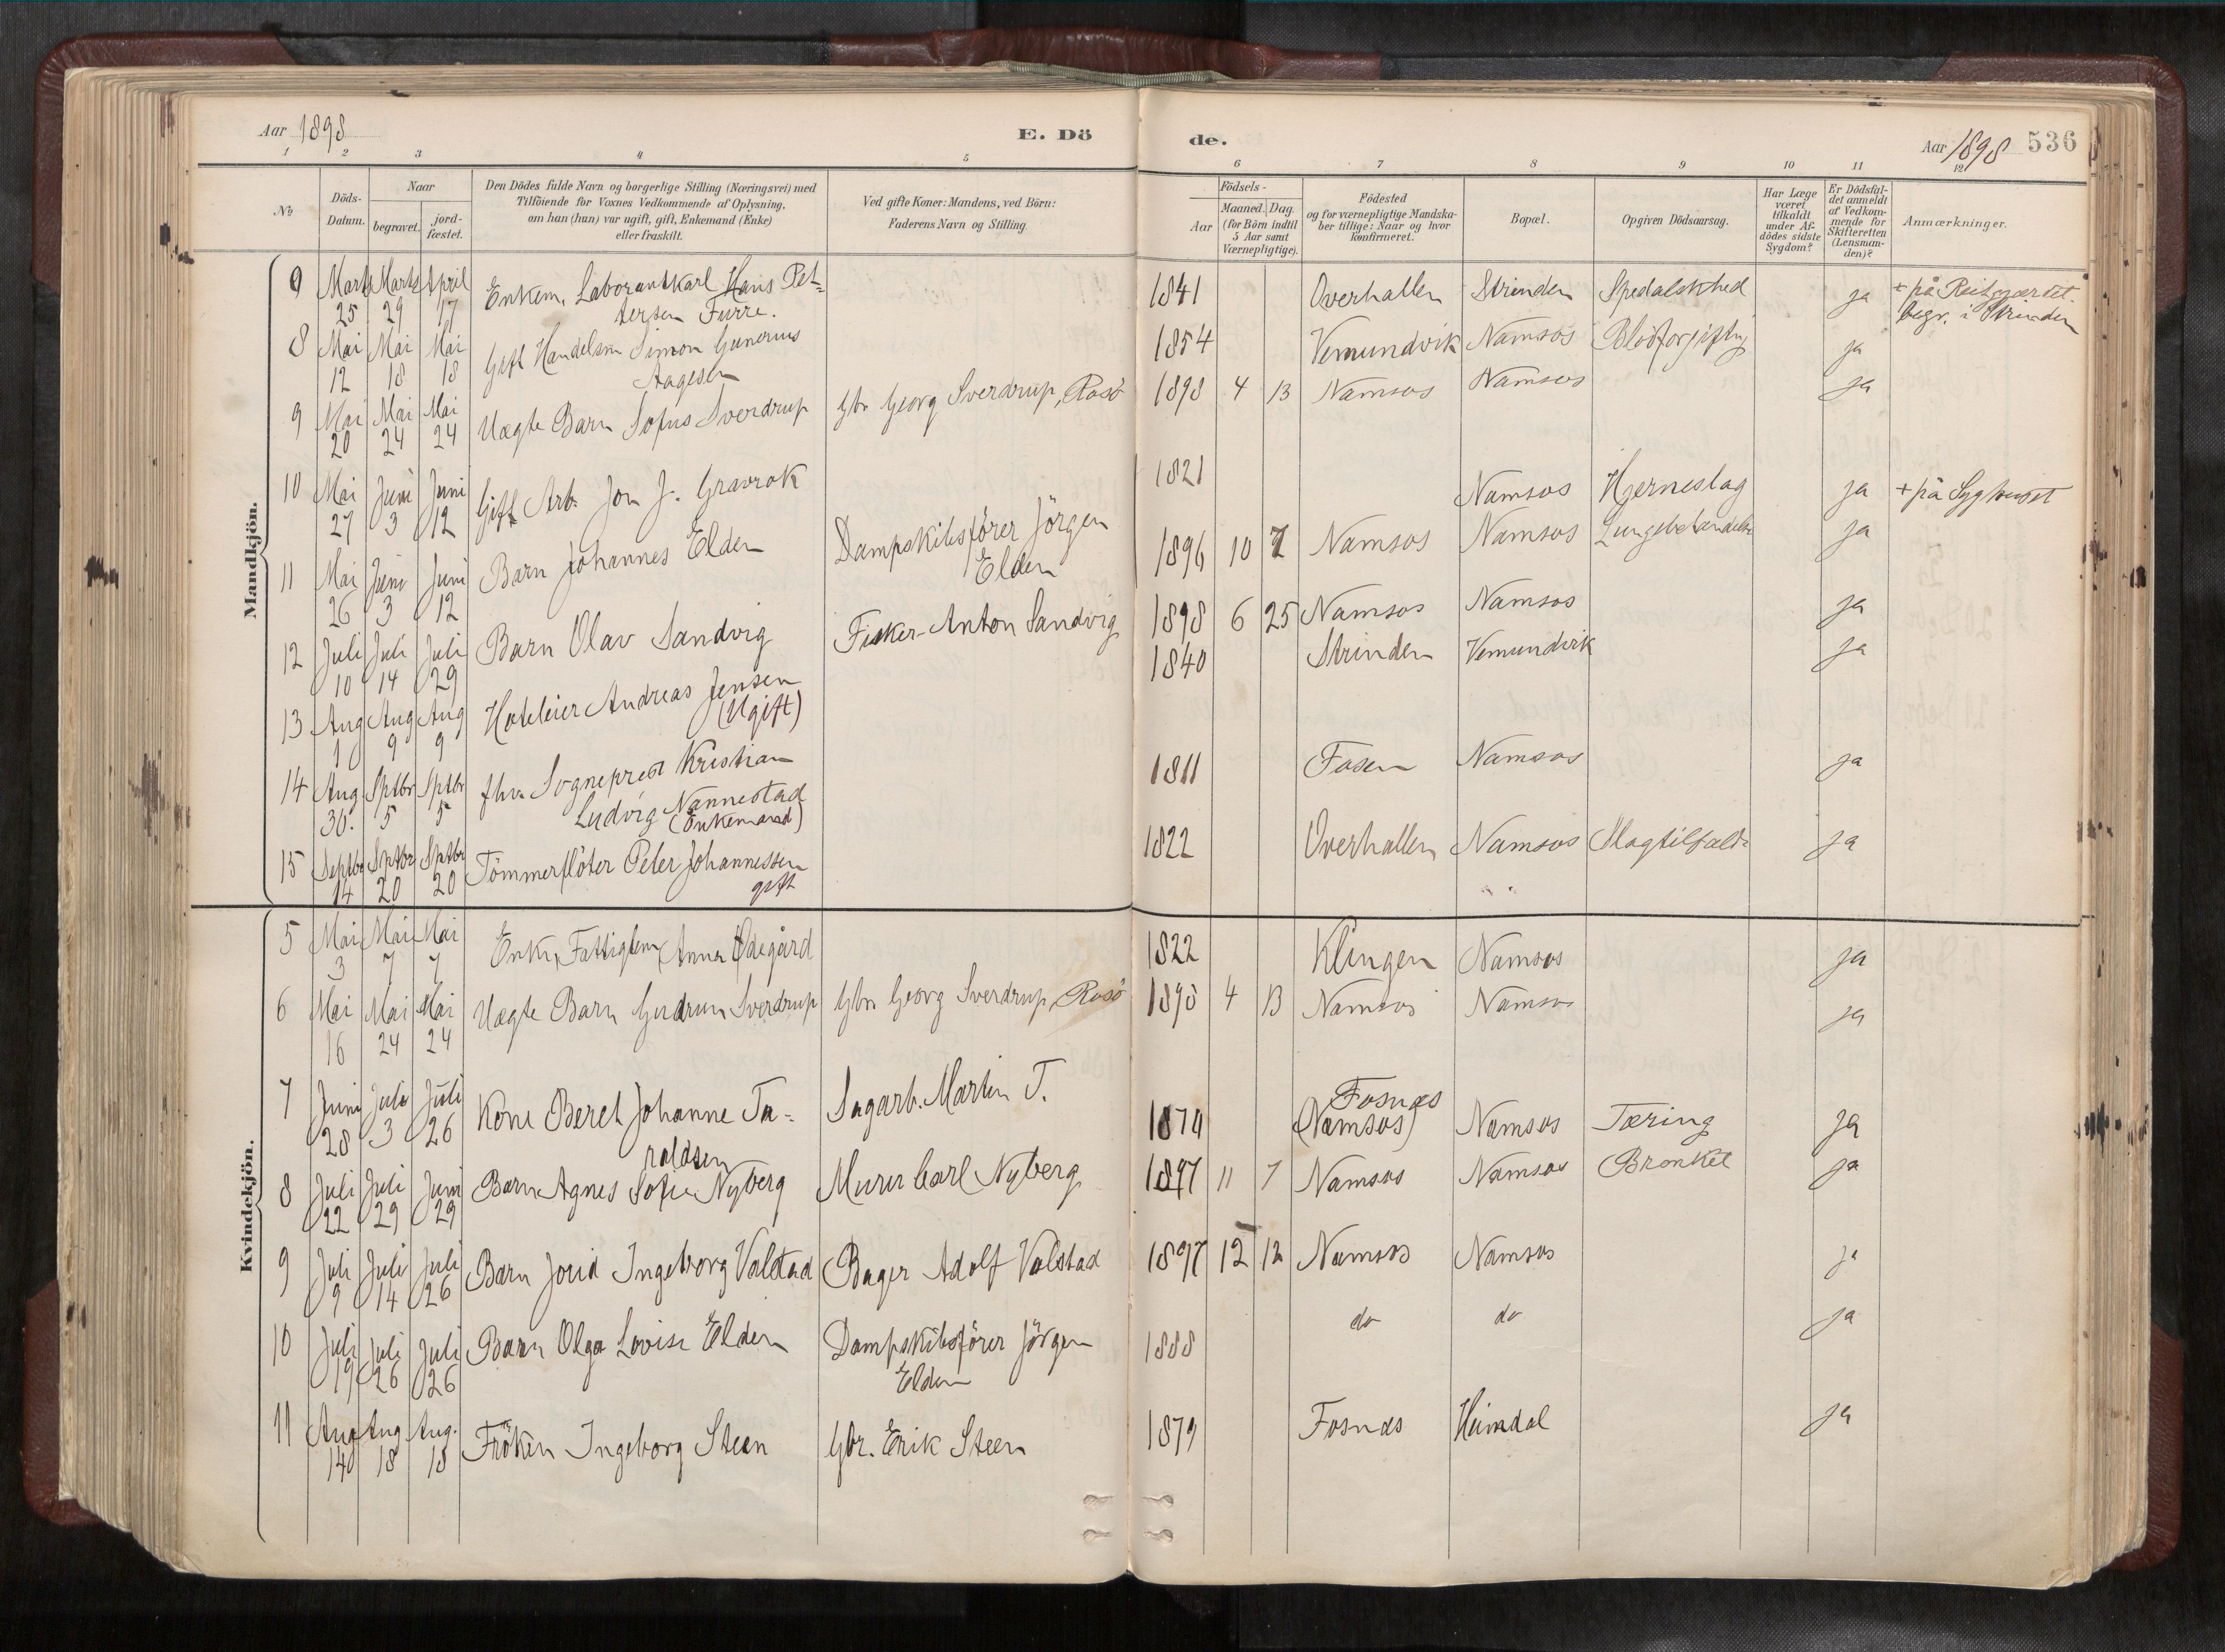 Aar 1898
E. Dö
de.
Aar 1898 536
1 2 3 4 5 6 7 8 9 10 11 12
No
Döds-
Datum.
Naar
begravet.
jord-
fæstet.
Den Dödes fulde Navn og borgerlige Stilling (Næringsvei) med
Tilföiende for Voxnes Vedkommende af Oplysning,
om han (hun) var ugift, gift, Enkemand (Enke)
eller fraskilt.
Ved gifte Koner: Mandens, ved Börn:
Faderens Navn og Stilling.
Födsels-
Aar
Maaned. Dag.
(for Börn indtil
5 Aar samt
Værnepligtige).
Födested
og for værnepligtige Mandska-
ber tillige: Naar og hvor
konfirmeret.
Bopæl.
Opgiven Dödsaarsag.
Har Læge
været
tilkaldt
under Af-
dödes sidste
Sygdom?
Er Dödsfal-
det anmeldt
af Vedkom-
mende for
Skifteretten
(Lensman-
den)?
Anmærkninger.
Mandkjön.
9 Marts Marts April Enkem. Laborantkarl Hans Pet= 1841 Overhallen Strinden Spedalskhed ja + på Reitgjærdet.
25 29 17 tersen Furre. begr. i Strinden
8 Mai Mai Mai Gift Handelsm Simon Gunerius 1854 Vemundvik Namsos Blodforgiftng ja
12 18 18 Aagesen
9 Mai Mai Mai Uægte Barn Sofus Sverdrup Gbr Georg Sverdrup, Rosö 1898 4 13 Namsos Namsos ja
20 24 24
10 Mai Juni Juni Gift Arb. Jon J. Gravrok 1821 Namsos Hjerneslag ja + på Syghuset
27 3 12
11 Mai Juni Juni Barn Johannes Elden Dampskibsförer Jörgen 1896 10 7 Namsos Namsos Lungebetændelse ja
26 3 12 Elden
12 Juli Juli Juli Barn Olav Sandvig Fisker Anton Sandvig 1898 6 25 Namsos Namsos ja
10 14 29
13 Aug Aug Aug Hoteleier Andreas Jensen 1840 Strinden Vemundvik ja
1 9 9 (Ugift)
14 Aug Sptbr Sptbr fhv. Sogneprest Kristian 1811 Fosen Namsos ja
30. 5 5 Ludvig Nannestad
(Enkemand)
15 Septbr Sptbr Sptbr Tömmerflöter Peter Johannessen 1822 Overhallen Namsos Slagtilfælde ja
14 20 20 gift
Kvindekjön.
5 Mai Mai Mai Enke, Fattiglem Anna Ødegård 1822 Klingen Namsos ja
3 7 7
6 Mai Mai Mai Uægte Barn Gudrun Sverdrup Gbr Georg Sverdrup, Rosö 1898 4 13 Namsos Namsos ja
16 24 24
7 Juni Juli Juli Kone Beret Johanne Ta- Sagarb. Martin T. 1874 Fosnæs
(Namsos) Namsos Tæring ja
28 3 26 raldsen
8 Juli Juli Juni Barn Agnes Sofie Nyberg Murer Carl Nyberg 1897 11 7 Namsos Namsos Bronkit ja
22 29 29
9 Juli Juli Juli Barn Jorid Ingeborg Valstad Bager Adolf Valstad 1897 12 12 Namsos Namsos ja
9 14 26
10 Juli Juli Juli Barn Olga Lovise Elden Dampskibsförer Jörgen 1888 do do ja
19 26 26 Elden
11 Aug Aug Aug. Fröken Ingeborg Steen Gbr. Erik Steen 1879 Fosnæs Heimdal ja
14 18 18